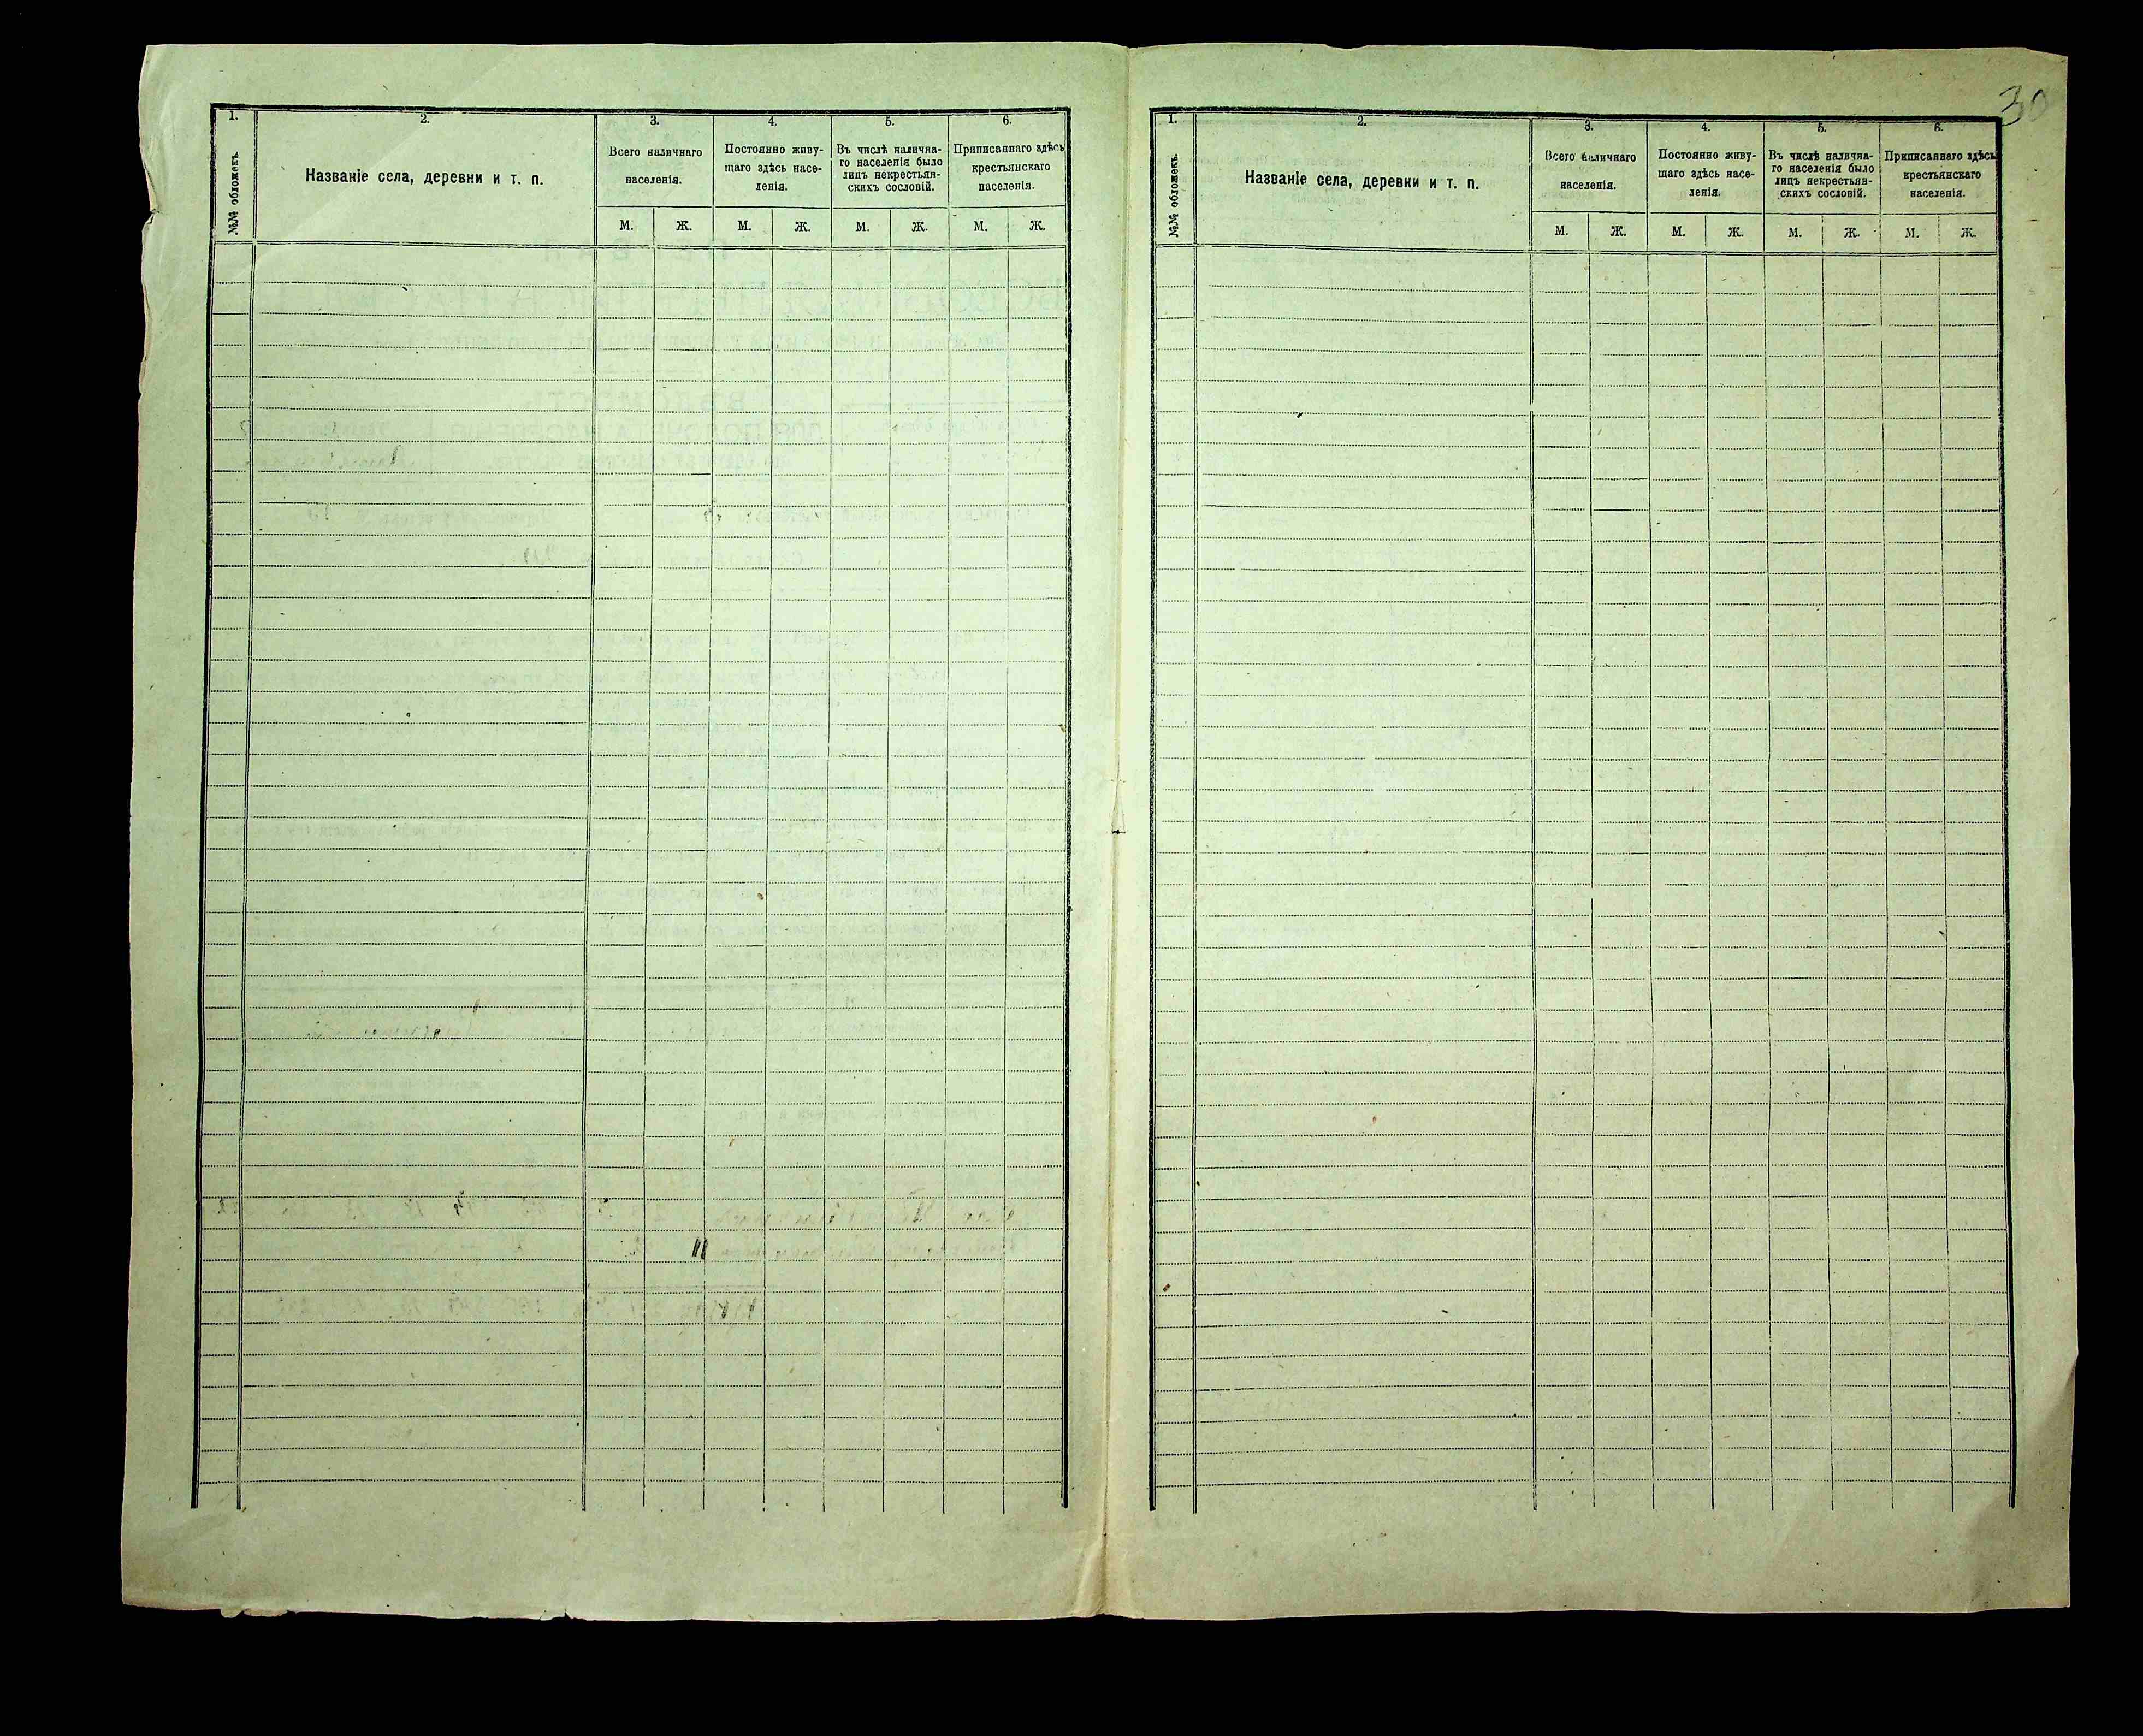 1.
2.
3.
4.
5.
6.
№№ обложекъ.
Названіе села, деревни и т. п.
Всего наличнаго
населенія.
Постоянно живу-
щаго здѣсь насе-
ленія.
Въ числѣ налична-
го населенія было
лицъ некрестьян-
скихъ сословій.
Приписаннаго здѣсь
крестьянскаго
населенія.
М. Ж. М. Ж. М. Ж. М. Ж.
30
1.
2.
3.
4.
5.
6.
№№ обложекъ.
Названіе села, деревни и т. п.
Всего наличнаго
населенія.
Постоянно живу-
щаго здѣсь насе-
ленія.
Въ числѣ налична-
го населенія было
лицъ некрестьян-
скихъ сословій.
Приписаннаго здѣсь
крестьянскаго
населенія.
М. Ж. М. Ж. М. Ж. М. Ж.